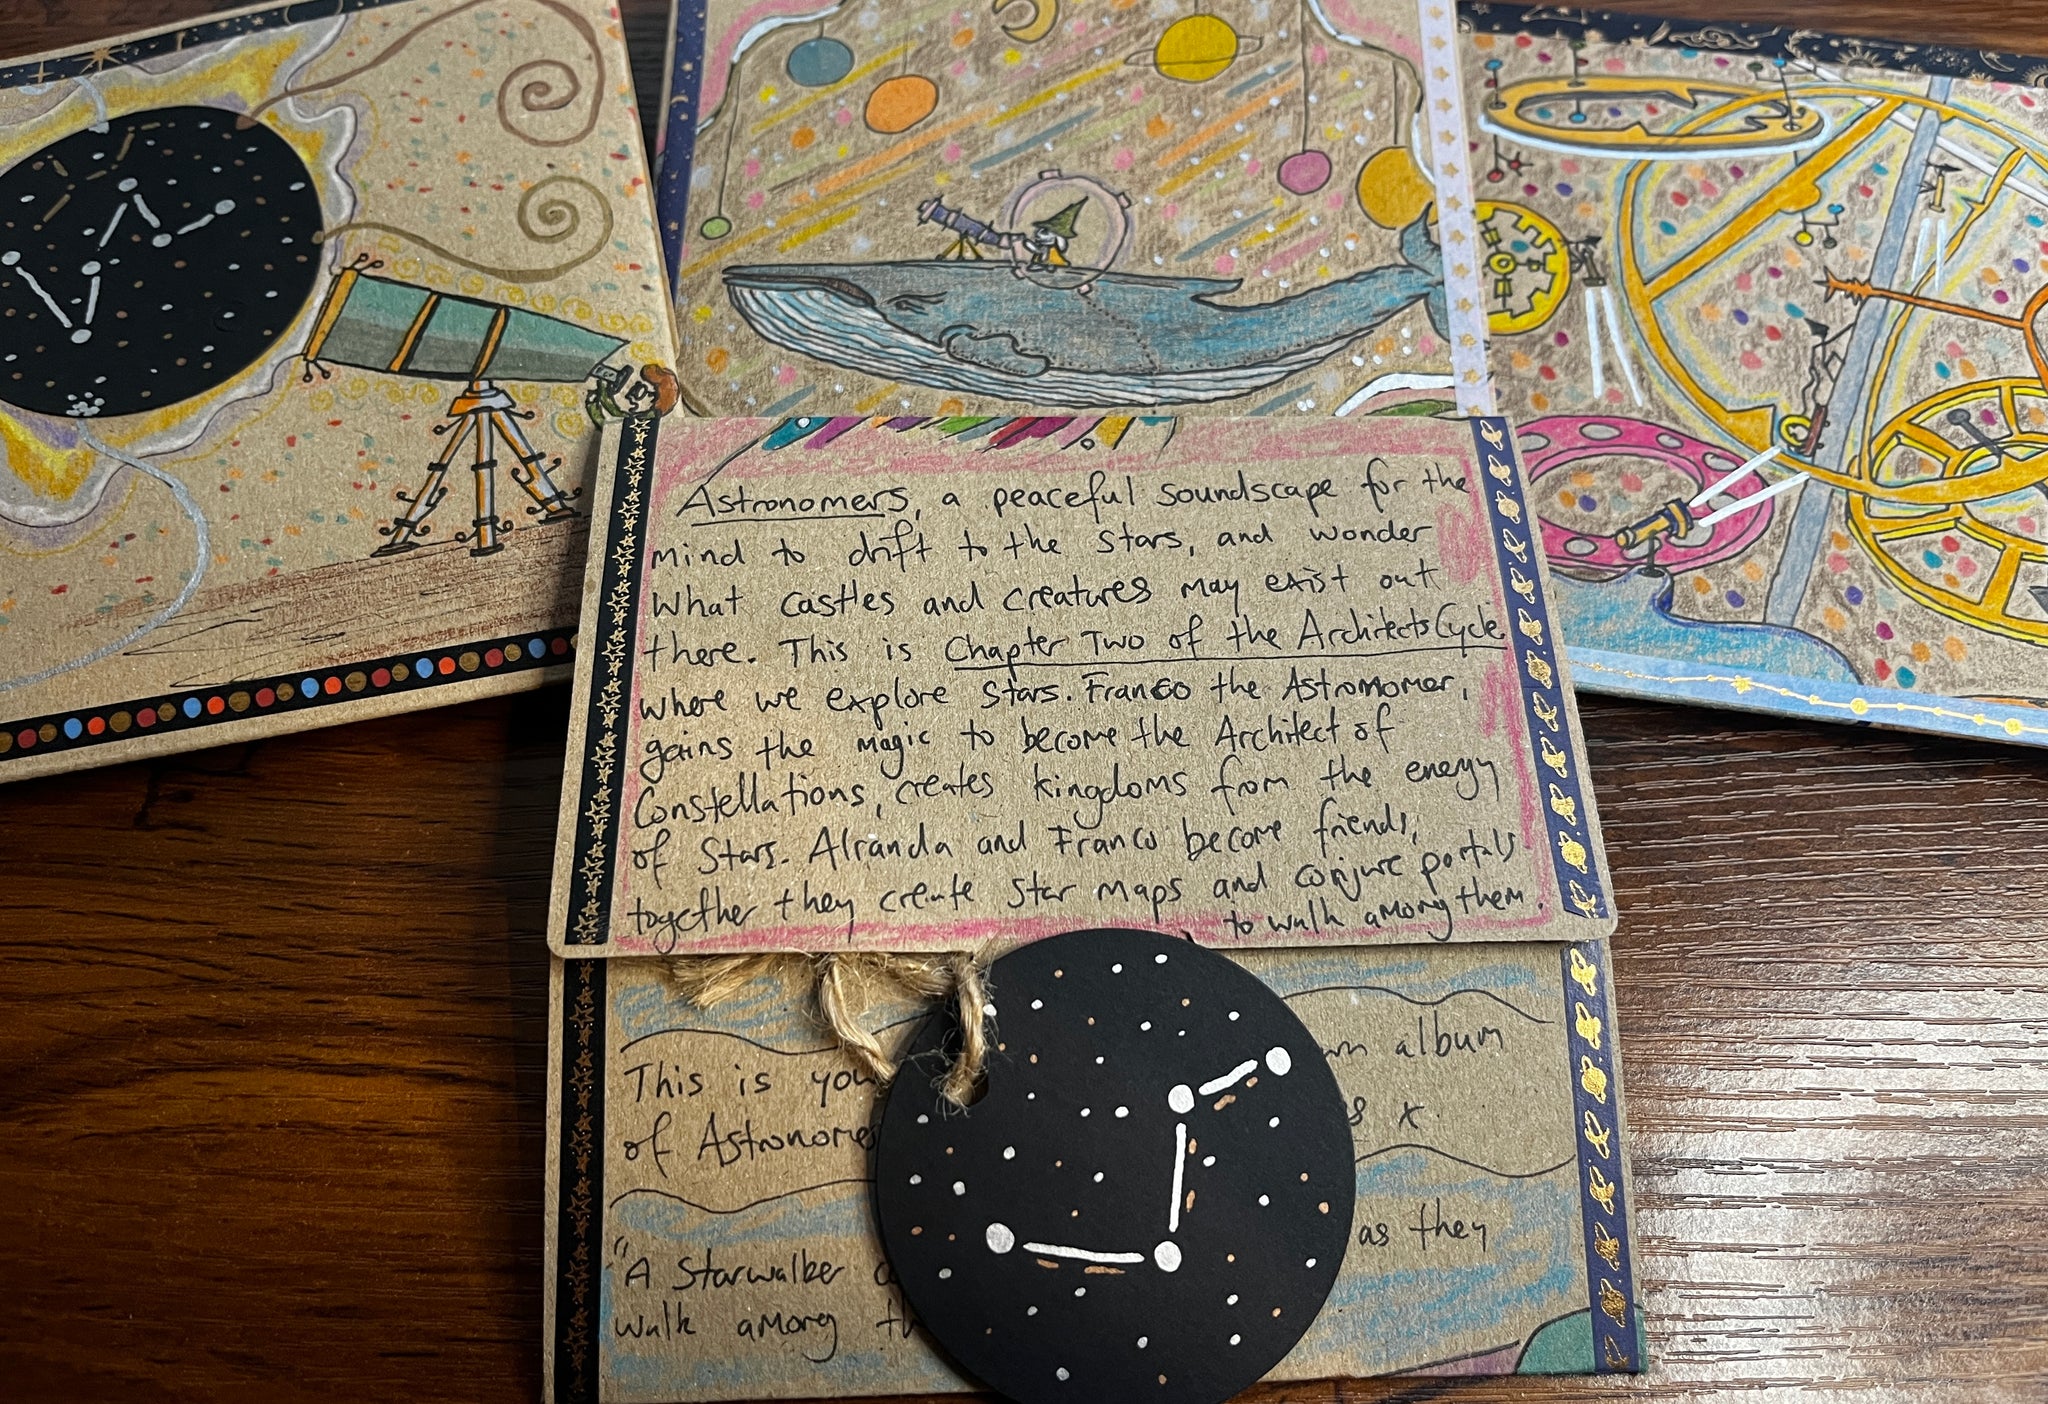 Astronomers, a peaceful soundscape for the
mind to drift to the stars, and wonder
what castles and creatures may exist out
there. This is Chapter Two of the Architects Cycle
where we explore stars. Franco the Astronomer,
gains the magic to become the Architect of
Constellations, creates kingdoms from the energy
of Stars. Alranda and Franco become friends,
together they create star maps and conjure portals
to walk among them.
This is album
of x
"A Starwalker as they
walk among